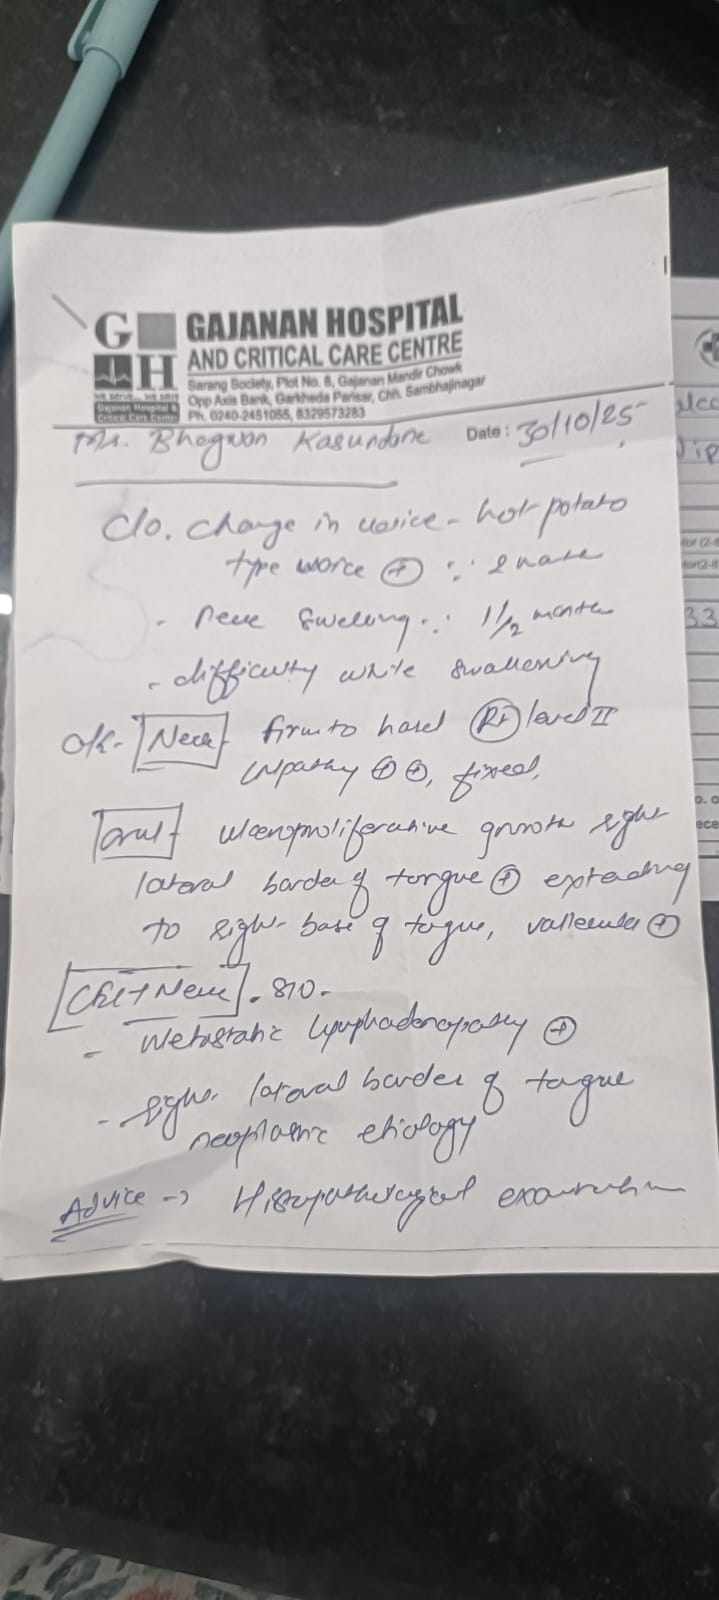 GH GAJANAN HOSPITAL
AND CRITICAL CARE CENTRE
Sarang Society, Plot No. 8, Gajanan Mandir Chowk
Opp Axis Bank, Garkheda Parisar, Chh. Sambhajinagar
Gajanan Hospital &
Critical Care Centre
Ph. 0240-2451055, 8329573283
Mr. Bhagwan Kasundane Date: 30/10/25
C/o. change in voice - hot potato
type voice ⊕ ∵
- Neck swelling ∵ 1 1/2 month
- difficulty while swallowing
O/E - Neck firm to hard Rt level II
⊕⊕, fixed,
oral ulceroproliferative growth right
lateral border of tongue ⊕ extending
to right base of tongue, vallecula ⊕
Neck S/O -
- Metastatic lymphadenopathy ⊕
- right lateral border of tongue
neoplastic etiology
Advice -> Histopathological examination